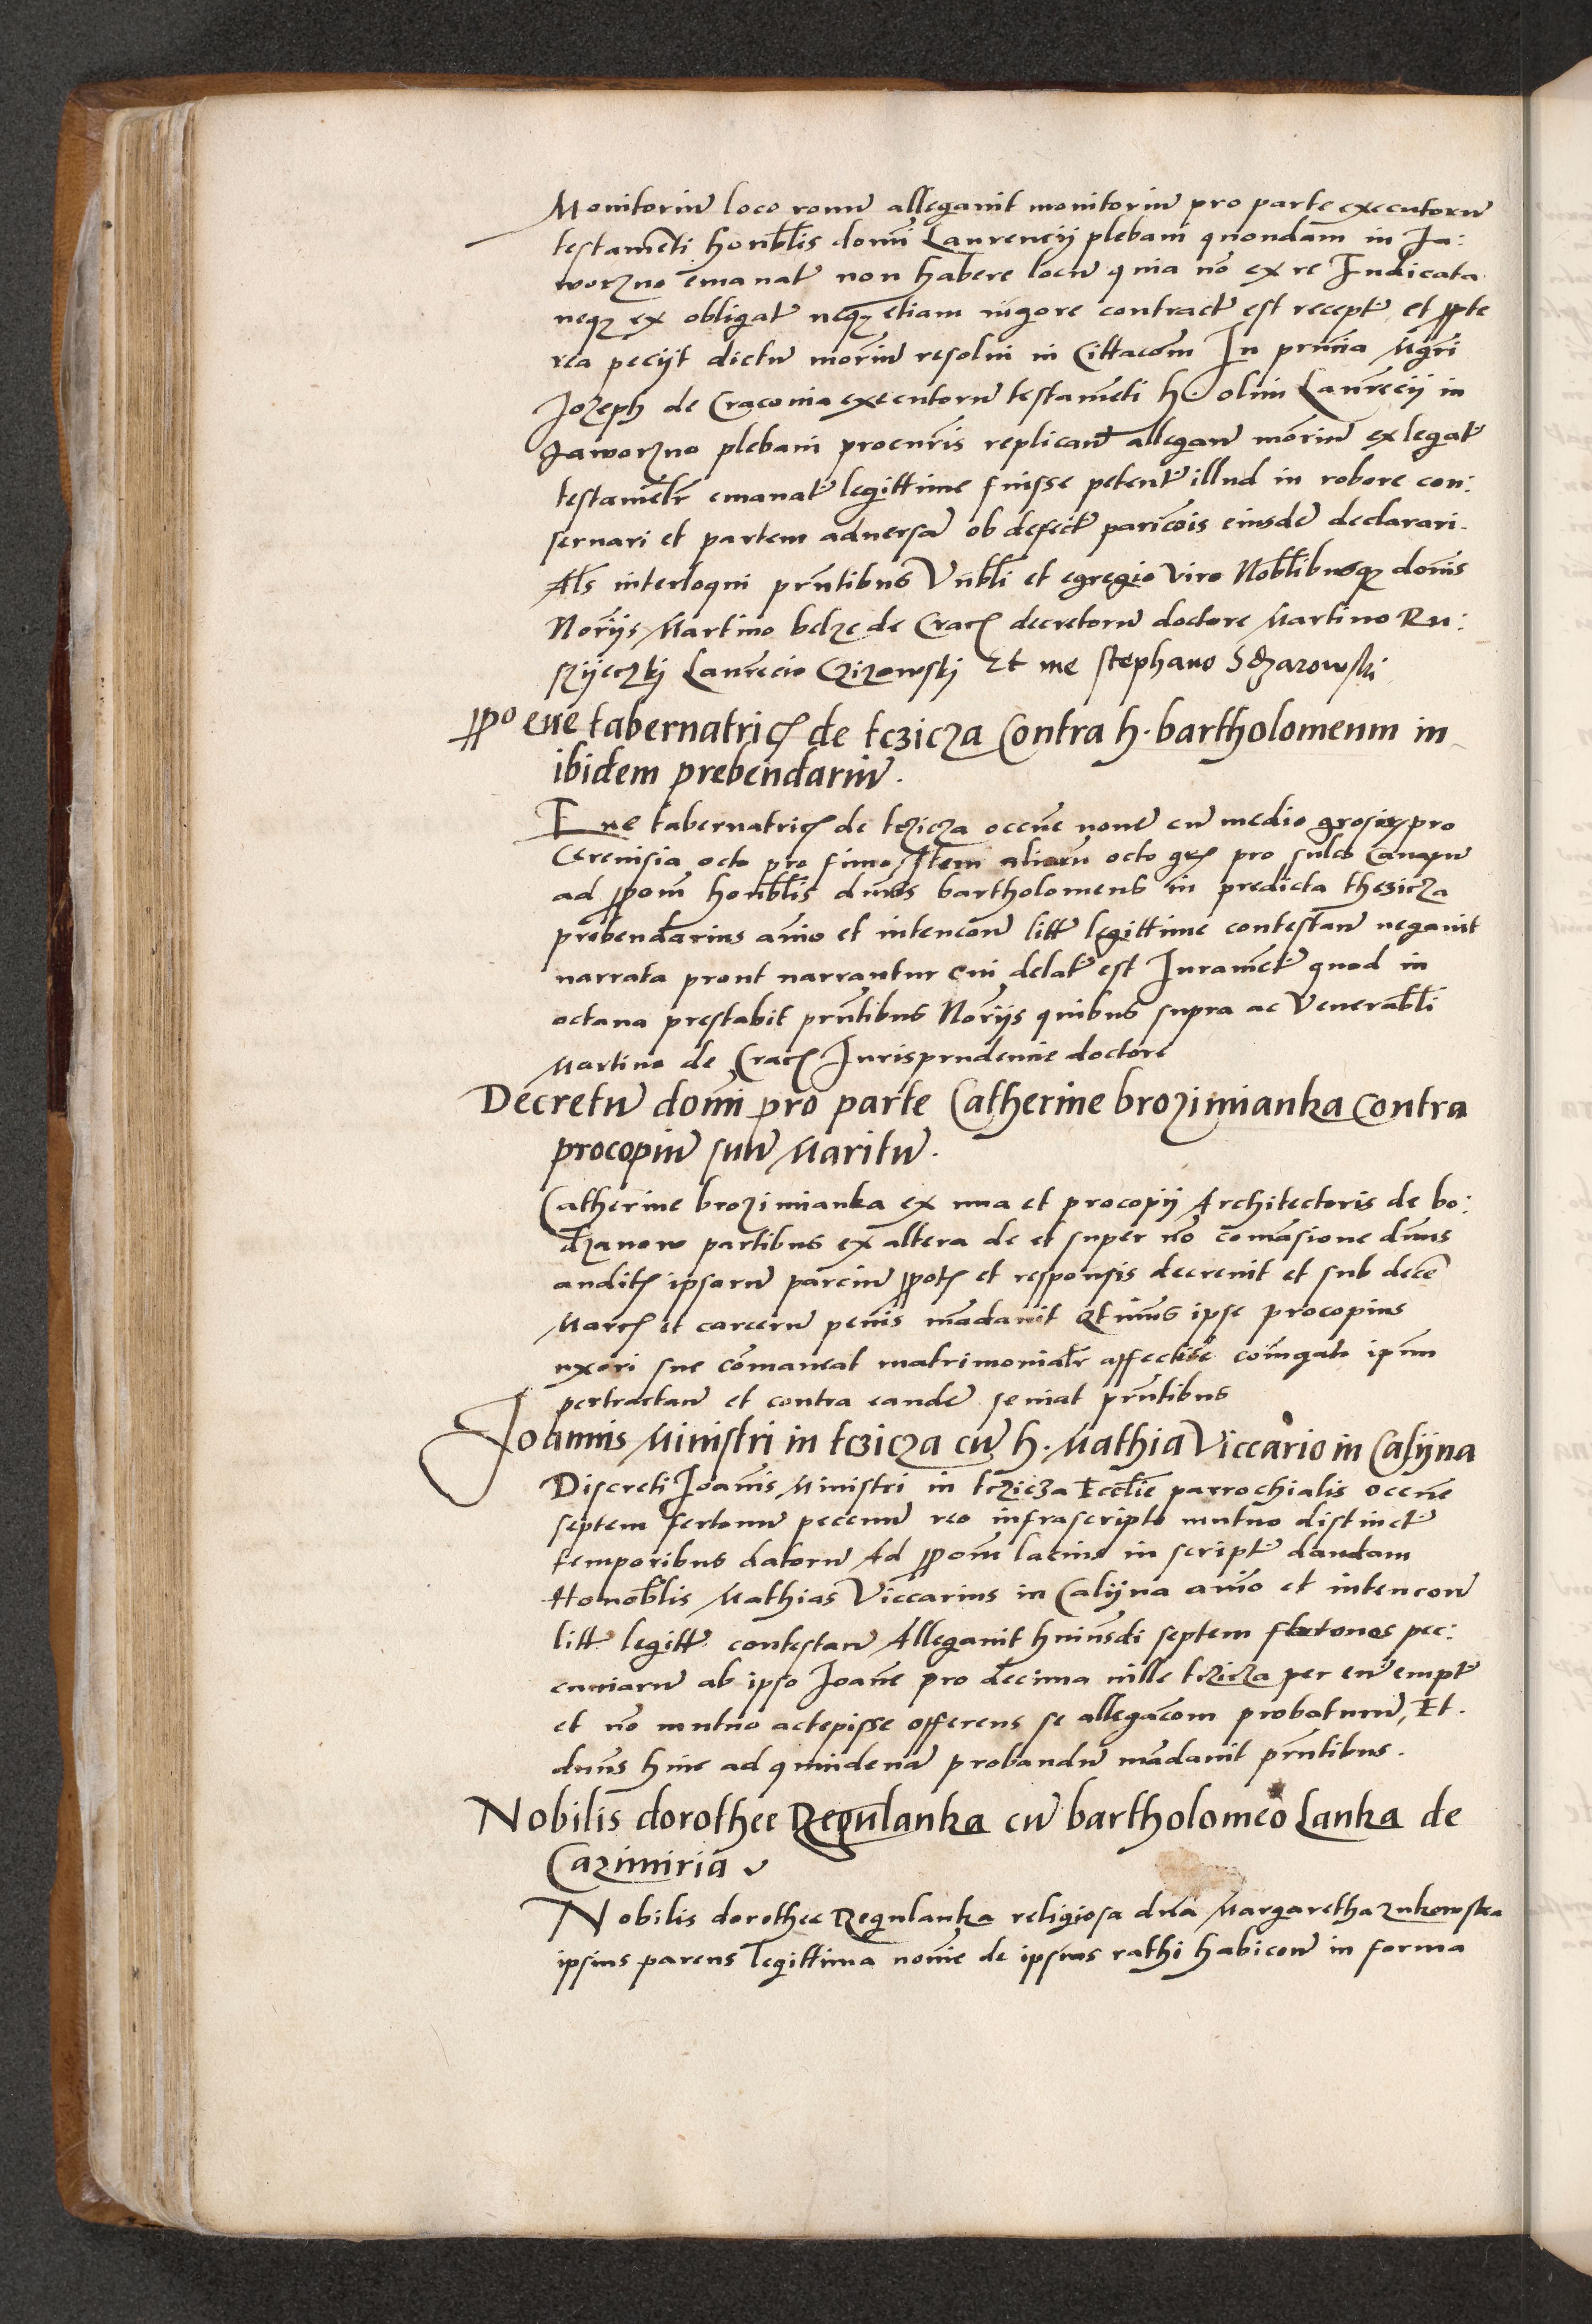 Monitoriū loco ronū allegauit monitoriū pro parte executorū
testamēti honᵇlis domi Laurencij plebani quondam in Ja:
worzno emanatū non habere locū quia nō ex re Iudicata
neqȝ ex obligatū neqȝ etiam uigore contractū est receptū et ppte
rea pecijt dictū moriū resolui in Cittacōm In prnīa Mgri
Jozeph de Cracouia executorū testamēti h. olim Laurēcij in
Jaworzno plebani procuris replicanť allegan̄ moriū ex legatū
testamēlr emanatū legittime fuisse petentū illud in robore con:
seruari et partem aduersā ob defectū paricōis eiusdē declarari.
Als interloqui prntibus Vnbli et egregio viro Noblibusqȝ domis
Norijs Martino belze de Crac decretorū doctore Martino Ru:
szijeczkj Laurēcio Czizowskj Et me stephano Sdzarowski
ppᵒ eue tabernatric de tczicza Contra h. bartholomeum in
ibidem prebendariū.
Eue tabernatric de tczicza occne nouē cū medio grosis pro
Cereuisia octo pro fimo Item aliorū octo grs pro sulco Canapū
ad ppom honᵇlis dnus bartholomeus in predicta thczicza
prebendarius aīo et intencōe litē legittime contestan̄ negauit
narrata prout narrantur cui delatū est Iuramētū quod in
octaua prestabit prntibus Norijs quibus supra ac Venerabli
Martino de Crac Iurisprudencie doctore
Decretū domi pro parte Catherine brozimianka Contra
procopiū suū Maritū.
Catherine brozimianka ex una et procopij Architectoris de bo:
dzanow partibus ex altera de et super nō comāsione dnus
auditis ipsarū parciū ppotis et responsis decreuit et sub decē
Marc et carcerū penis mādauit Qtinus ipse procopius
uxori sue cōmaneat matrimonialr affectiōe coiugali ipam
pertractan̄ et contra eandē seuiat prntibus
Joannis Ministri in tczicza cū h. Mathia Viccario in Calijna
Discreti Joannis Ministri in tczicza Ecclie parrochialis occne
septem fertonū peccniū reo infrascripto mutuo distinctū
temporibus datorū Ad ppom lacius in scriptū dandam
Honoblis Mathias Viccarius in Calijna aīo et intencōe
litē legittē contestan̄ Allegauit huiusdi septem fertones pec:
cuniarū ab ipso Joane pro decima uille tczicza per eū emptū
et nō mutuo accepisse offerens se allegacōem probaturū, Et
dnus huic ad quindenā probandū mādauit prntibus.
Nobilis dorothee Regulanka cū bartholomeo Lanka de
Cazimiria
Nobilis dorothee Regulanka religiosa dna Margaretha zukowska
ipsius parens legittima noīe de ipsius rathi habicōe in forma